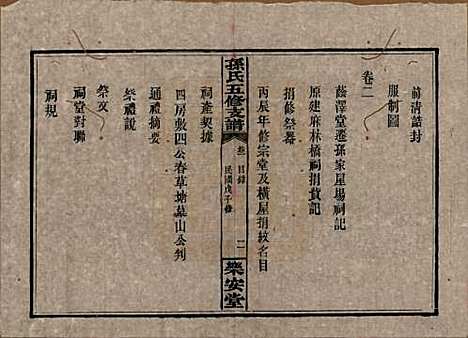 前清誥封
服制圖
卷二
蔭澤堂遷孫家屋場祠記
原建麻林橋祠捐貲記
捐修祭器
丙辰年修宗堂及橫屋捐紋名目
孫氏五修支譜
卷 目錄
民國戊子修
二
樂安堂
祠產契據
四房敷四公春草塘墓山公判
通禮摘要
祭禮說
祭文
祠堂對聯
祠規